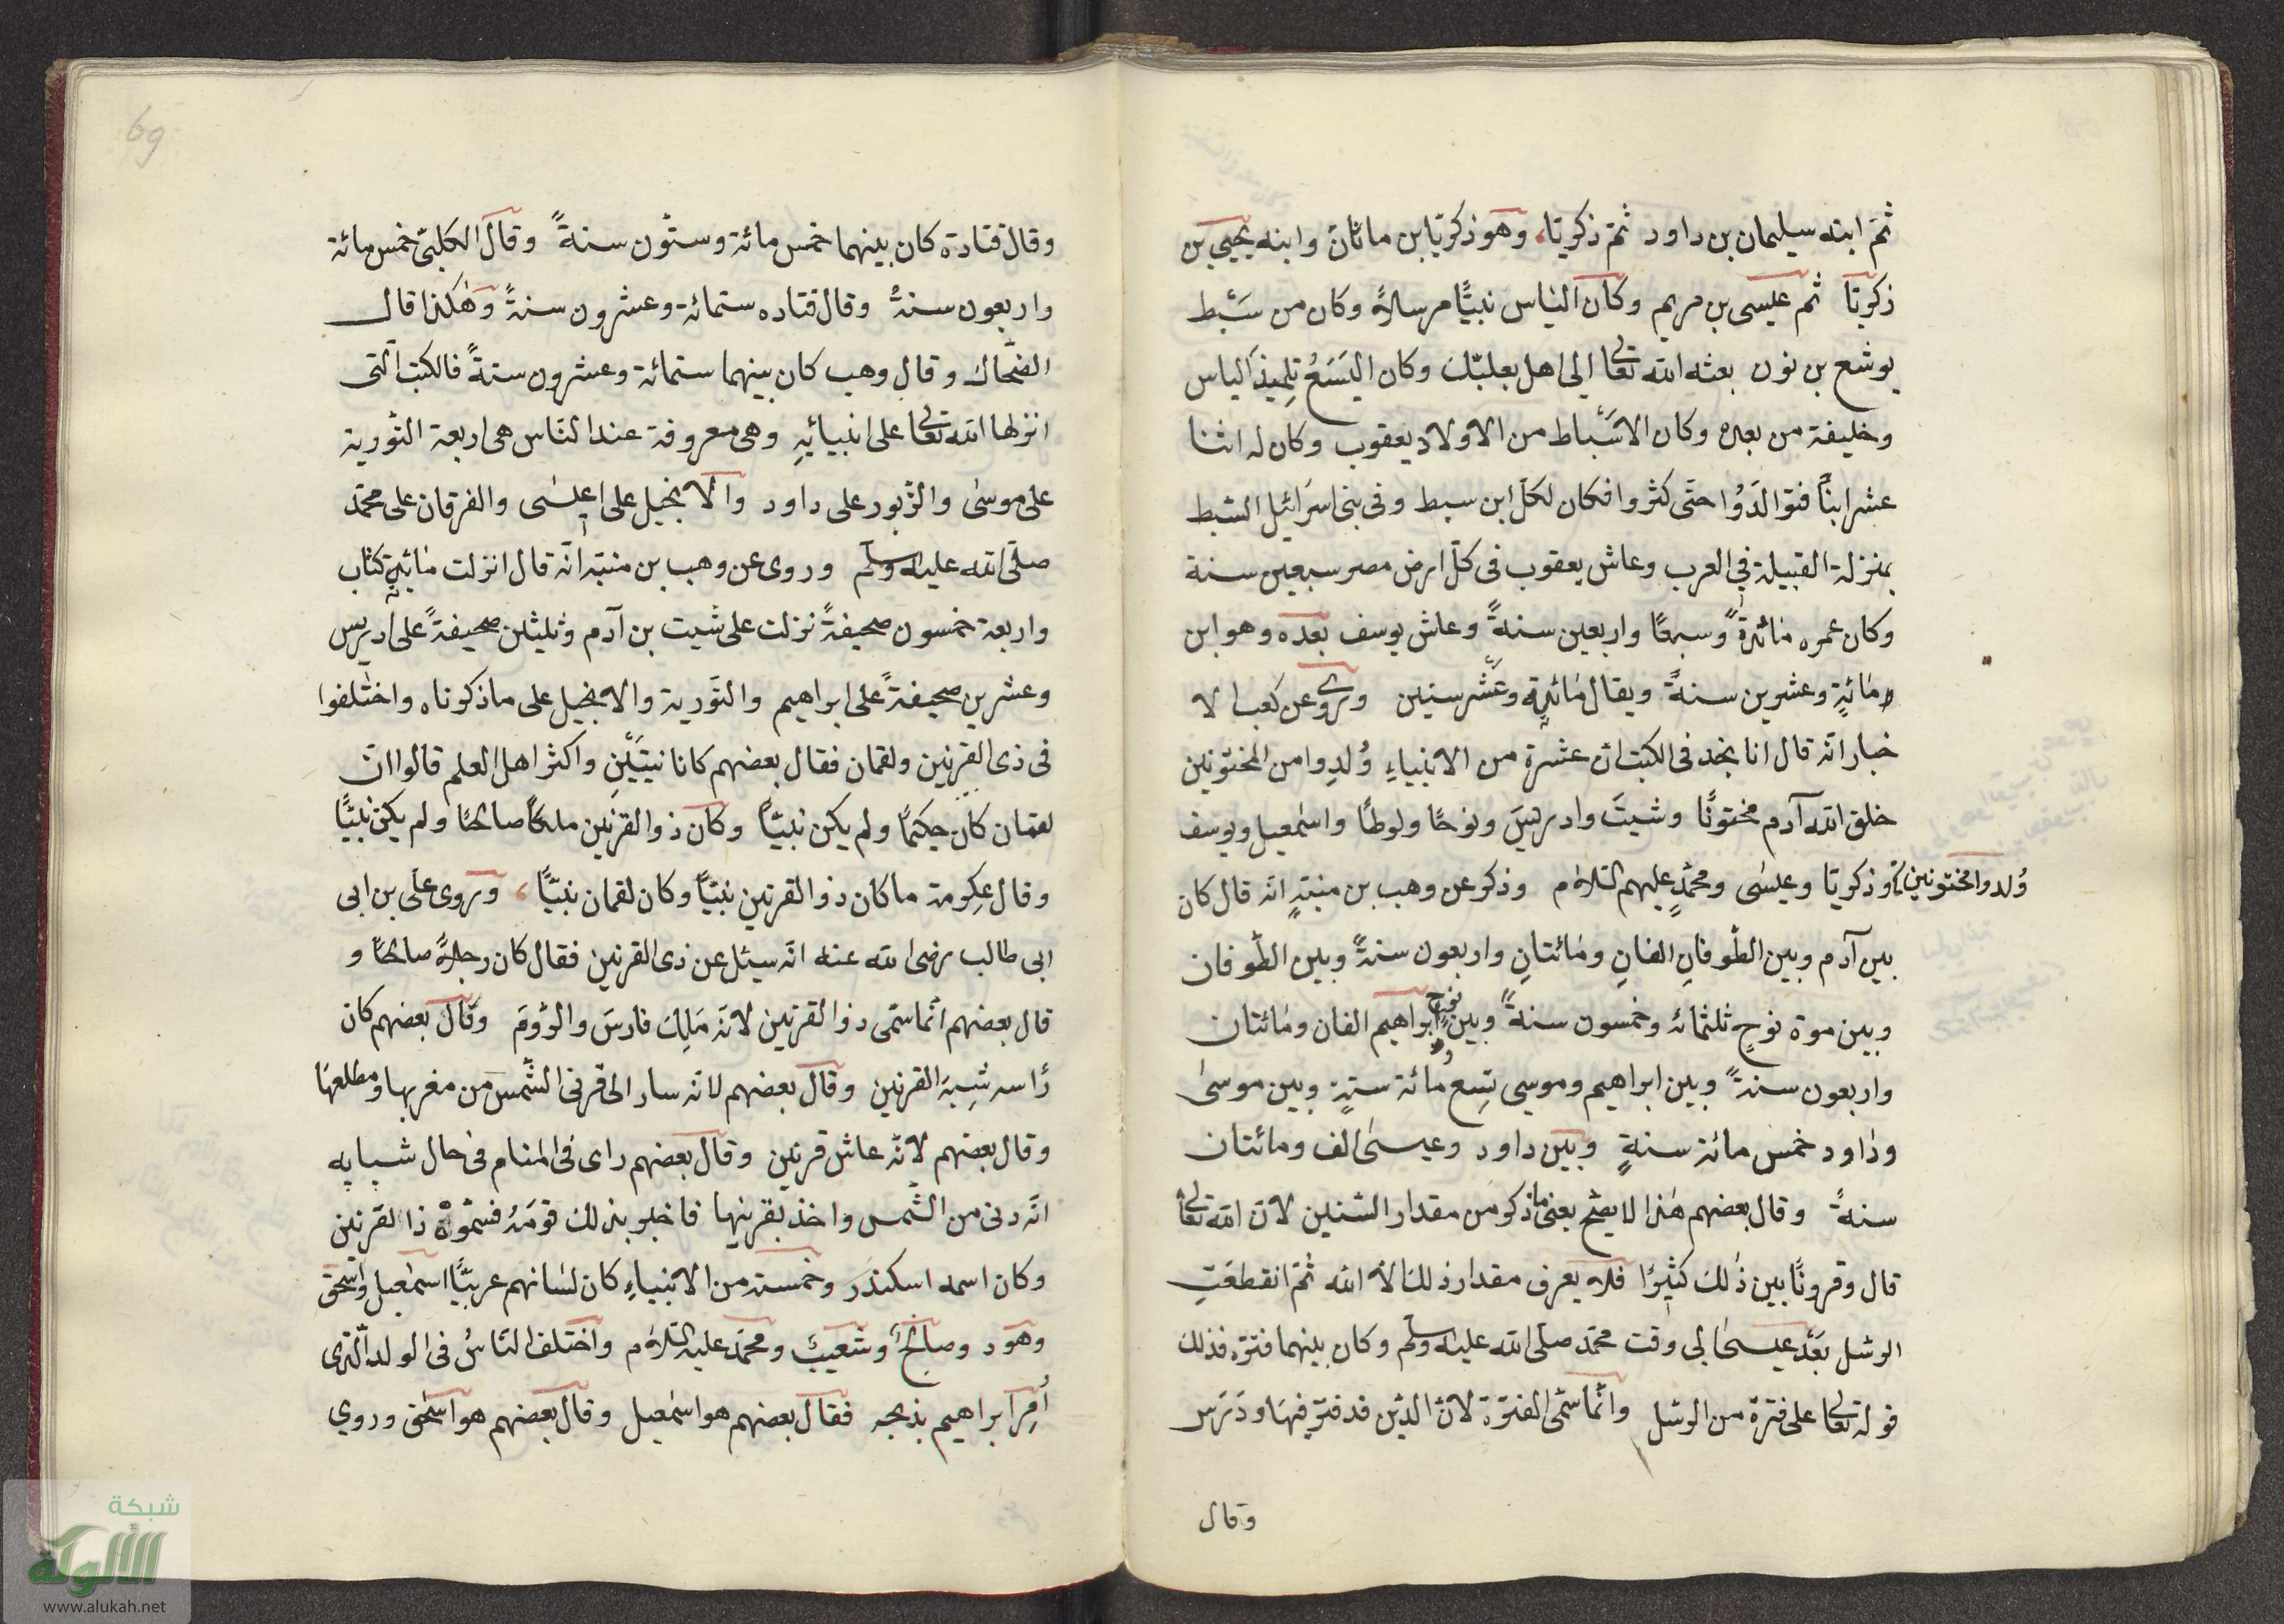 ثمّ ابنه سليمان بن داود ثمّ زكريّا، وهو زكريّا بن ماثان وابنه يحيى بن
زكريّا ثمّ عيسى بن مريم وكان الياس نبيًّا مرسلاً وكان من سَبْط
يوشع بن نون بعثه الله تعالى الى اهل بعلبّك وكان اليَسَعُ تِلميذ الياس
وخليفة من بعده وكان الاسْباط من الاولاد يعقوب وكان له اثنا
عشر ابنًا فتوالَدُوا حتّى كثروا فكان لكلّ ابن سبط وفى بنى اسرائيل السّبط
بمنزلة القبيلة في العرب وعاش يعقوب فى كلّ ارض مصر سبعين سنة
وكان عمره مائةً وسبعًا واربعين سنةً وعاش يوسف بعده وهو ابن
مائةٍ وعشرين سنةً ويقال مائةٍ وعَشْر سنين وروى عن كعب الا
خبار انّه قال انا نجد فى الكتب انّ عشرة من الانبياءِ وُلِدوا من المختونين
خلق الله آدم مختونًا وشيتَ وادريسَ ونوحًا ولوطًا واسمعيل ويوسف
وُلدوا مختونين وزكريّا وعيسى ومحمّدٍ عليهم السّلام وذكر عن وهب بن منبّهٍ انّه قال كان
بين آدم وبين الطّوفانِ الفانِ ومائتانِ واربعون سنةً وبين الطّوفان
وبين موة نوحٍ ثلثمائه وخمسون سنةً وبين نوحٍ وابراهيم الفان ومائتان
واربعون سنةً وبين ابراهيم وموسى تِسع مائة سنةٍ وبين موسىٰ
وداود خمس مائة سنةٍ وبين داود وعيسىٰ الف ومائتان
سنةً وقال بعضهم هٰذا لا يصحّ يعنى ما ذكر من مقدار السّنين لانّ الله تعالى
قال وقرونًا بين ذٰلك كثيرًا فلا يعرف مقدار ذلك الّا الله ثمّ انقطعَتِ
الرسل بَعْد عيسىٰ الى وقت محمّد صلّى الله عليه وسلّم وكان بينهما فترة فذلك
قوله تعالى على فترة من الرسل وانّما سمّى الفترة لانّ الدّين قد فتر فيها ودَرَس
وقال
69
وقال قتادة كان بينهما خمس مائة وستّون سنةً وقال الكلبىّ خمس مائة
واربعون سنةً وقال قتاده ستمائة وعشرون سنةً وهٰكذا قال
الضحّاك وقال وهب كان بينهما ستمائة وعشرون سنةً فالكتب الّتى
انزلها الله تعالى على انبيائِهِ وهى معروفة عند النّاس هى اربعة التّورية
على موسىٰ والزّبور على داود والانجيل على عيسى والفرقان على محمّد
صلّى الله عليه وسلّم وروى عن وهب بن منبّه انّه قال انزلت مائة كتاب
واربعة خمسون صحيفةً نزلت على شيت بن آدم وثلثين صحيفةً على ادريس
وعشرين صحيفةً على ابراهيم والتّورية والانجيل على ما ذكرناه واختلفوا
فى ذى القرنين ولقمان فقال بعضهم كانا نبيّين واكثر اهل العلم قالوا انّ
لقمان كان حكيمًا ولم يكن نبيًّا وكان ذو القرنين ملكًا صالحًا ولم يكن نبيًّا
وقال عكرمة ما كان ذو القرنين نبيًّا وكان لقمان نبيًّا، وروى علّى بن ابى
ابى طالب رضى الله عنه انّه سئل عن ذى القرنين فقال كان رجلاً صالحًا و
قال بعضهم انّما سمّى ذو القرنين لانّه مَلِك فارسَ والرّومَ وقال بعضهم كان
رأسه شبيه القرنين وقال بعضهم لانّه سار الى قرنى الشّمس من مغربها ومطلعها
وقال بعضهم لانّه عاش قرنين وقال بعضهم راى فى المنام فى حال شبابه
انّه دنى من الشّمس واخذ بقرنيها فاخبر بذلك قومَهُ فسمّوه ذا القرنين
وكان اسمه اسكندر وخمسة من الانبياءِ كان لسانهم عربيًّا اسمٰعيل واسحق
وهود وصالحًا وشعيبً ومحمّد عليه السّلام واختلف النّاسُ فى الولد الّذى
أُمِر ابراهيم بذبحه فقال بعضهم هو اسمٰعيل وقال بعضهم هو اسحٰق وروي
شبكة
الألوكة
www.alukah.net